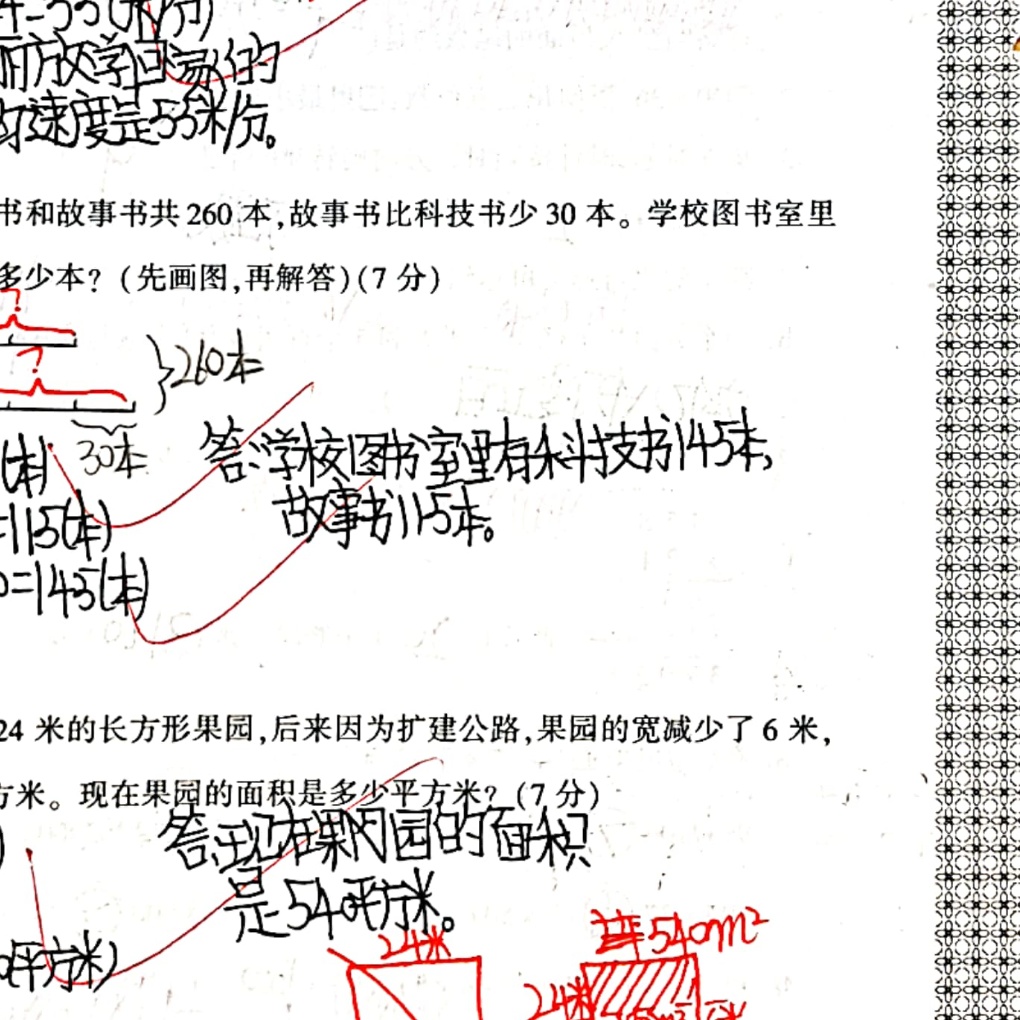 =55(米/分)
放学回家的
速度是55米/分。
书和故事书共260本,故事书比科技书少30本。学校图书室里
多少本?(先画图,再解答)(7分)
?
?
260本
30本
(本)
答:学校图书室里有科技书145本,
=115(本)
故事书115本。
=145(本)
24米的长方形果园,后来因为扩建公路,果园的宽减少了6米,
方米。现在果园的面积是多少平方米?(7分)
答:现在果园的面积
是540平方米。
0(平方米)
24米
540m²
24米